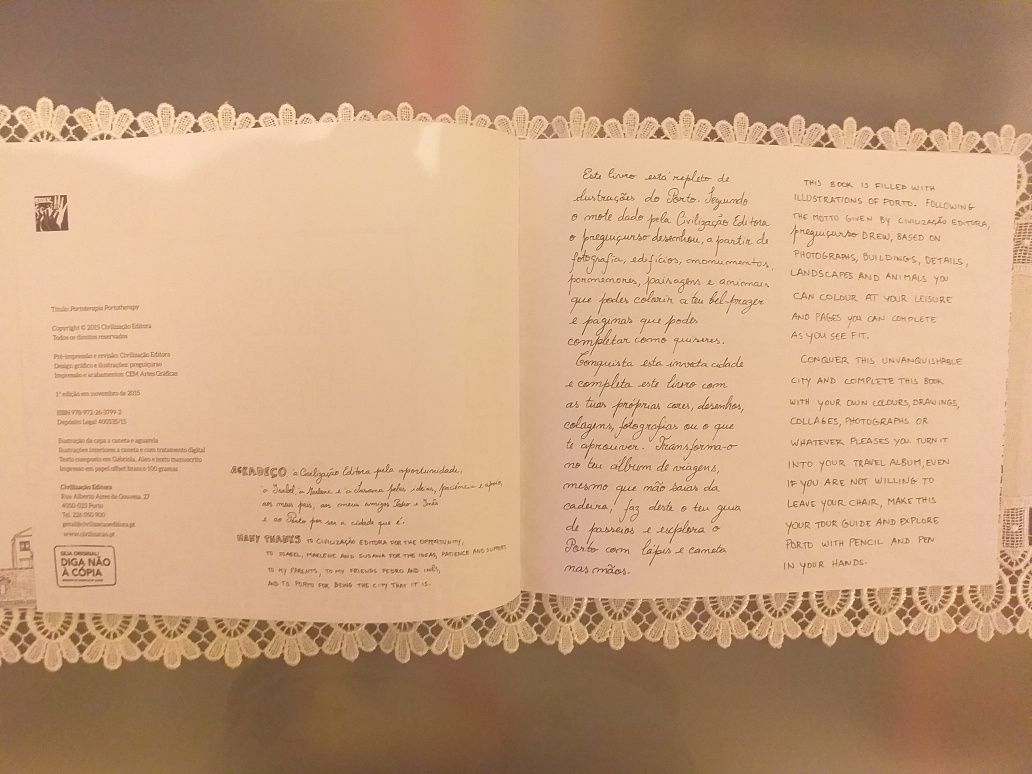 Título: Portoterapia Portotherapy
Copyright © 2015 Civilização Editora
Todos os direitos reservados
Pré-impressão e revisão: Civilização Editora
Design gráfico e ilustrações: preguiçurso
Impressão e acabamentos: CEM Artes Gráficas
1ª edição em novembro de 2015
ISBN 978-972-26-3799-2
Depósito Legal 400535/15
Ilustração da capa a caneta e aguarela
Ilustrações interiores a caneta e com tratamento digital
Texto composto em Gabriola, Aleo e texto manuscrito
Impresso em papel offset branco 100 gramas
Civilização Editora
Rua Alberto Aires de Gouveia, 27
4050-023 Porto
Tel. 226 050 900
geral@civilizacaoeditora.pt
www.civilizacao.pt
SEJA ORIGINAL!
DIGA NÃO
À CÓPIA
AGRADEÇO à Civilização Editora pela oportunidade,
à Isabel, à Marlene e à Susana pelas ideias, paciência e apoio,
aos meus pais, aos meus amigos Pedro e Inês
e ao Porto por ser a cidade que é.
MANY THANKS TO CIVILIZAÇÃO EDITORA FOR THE OPPORTUNITY,
TO ISABEL, MARLENE AND SUSANA FOR THE IDEAS, PATIENCE AND SUPPORT
TO MY PARENTS, TO MY FRIENDS PEDRO AND INÊS,
AND TO PORTO FOR BEING THE CITY THAT IT IS.
Este livro está repleto de
ilustrações do Porto. Segundo
o mote dado pela Civilização Editora
o preguiçurso desenhou, a partir de
fotografia, edifícios, monumentos,
pormenores, paisagens e animais
que podes colorir a teu bel-prazer
e páginas que podes
completar como quiseres.
Conquista esta invicta cidade
e completa este livro com
as tuas próprias cores, desenhos,
colagens, fotografias ou o que
te aprouver. Transforma-o
no teu álbum de viagens,
mesmo que não saias da
cadeira, faz deste o teu guia
de passeios e explora o
Porto com lápis e caneta
nas mãos.
THIS BOOK IS FILLED WITH
ILLUSTRATIONS OF PORTO. FOLLOWING
THE MOTTO GIVEN BY CIVILIZAÇÃO EDITORA,
preguiçurso DREW, BASED ON
PHOTOGRAPHS, BUILDINGS, DETAILS,
LANDSCAPES AND ANIMALS YOU
CAN COLOUR AT YOUR LEISURE
AND PAGES YOU CAN COMPLETE
AS YOU SEE FIT.
CONQUER THIS UNVANQUISHABLE
CITY AND COMPLETE THIS BOOK
WITH YOUR OWN COLOURS, DRAWINGS,
COLLAGES, PHOTOGRAPHS OR
WHATEVER PLEASES YOU. TURN IT
INTO YOUR TRAVEL ALBUM, EVEN
IF YOU ARE NOT WILLING TO
LEAVE YOUR CHAIR, MAKE THIS
YOUR TOUR GUIDE AND EXPLORE
PORTO WITH PENCIL AND PEN
IN YOUR HANDS.